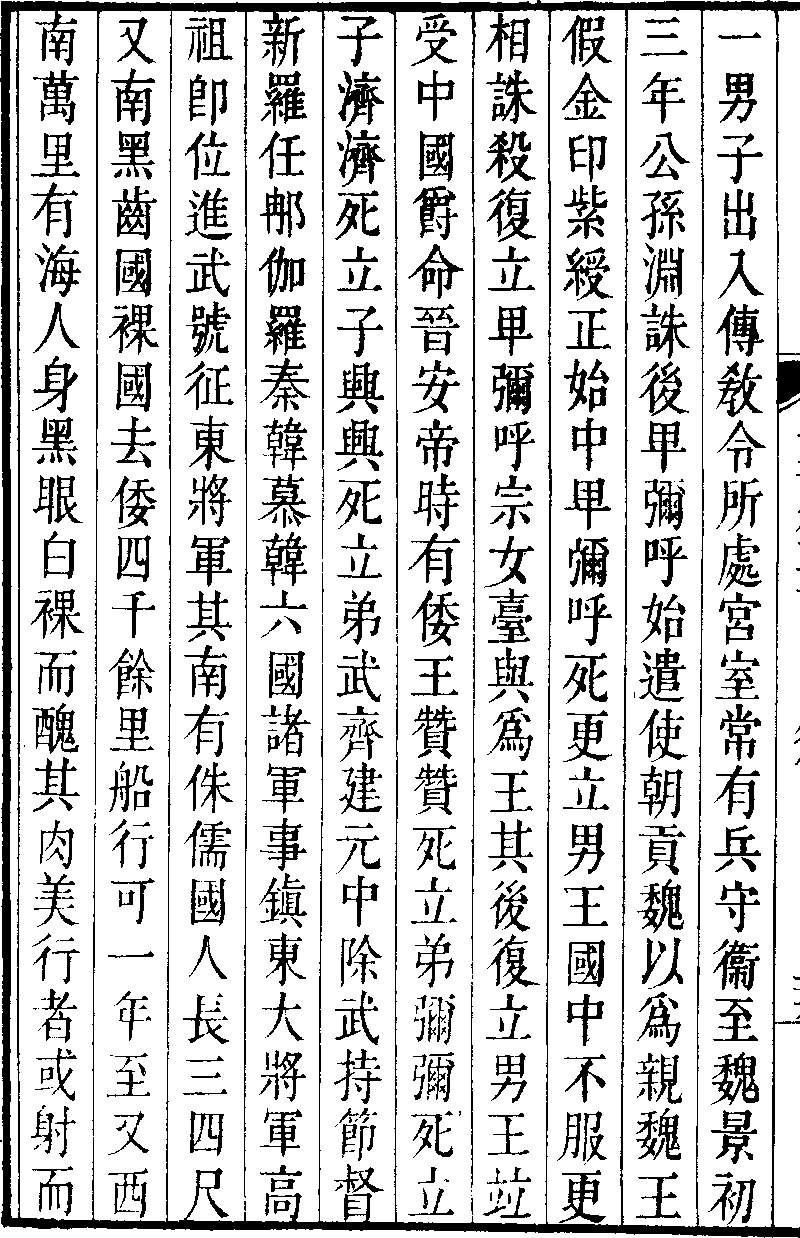 一男子出入傳敎令所處宮室常有兵守衞至魏景初
三年公孫淵誅後卑彌呼始遣使朝貢魏以爲親魏王
假金印紫綬正始中卑彌呼死更立男王國中不服更
相誅殺復立卑彌呼宗女臺與爲王其後復立男王竝
受中國爵命晉安帝時有倭王贊贊死立弟彌彌死立
子濟濟死立子興興死立弟武齊建元中除武持節督
新羅任那伽羅秦韓慕韓六國諸軍事鎭東大將軍高
祖卽位進武號征東將軍其南有侏儒國人長三四尺
又南黑齒國裸國去倭四千餘里船行可一年至又西
南萬里有海人身黑眼白裸而醜其肉美行者或射而